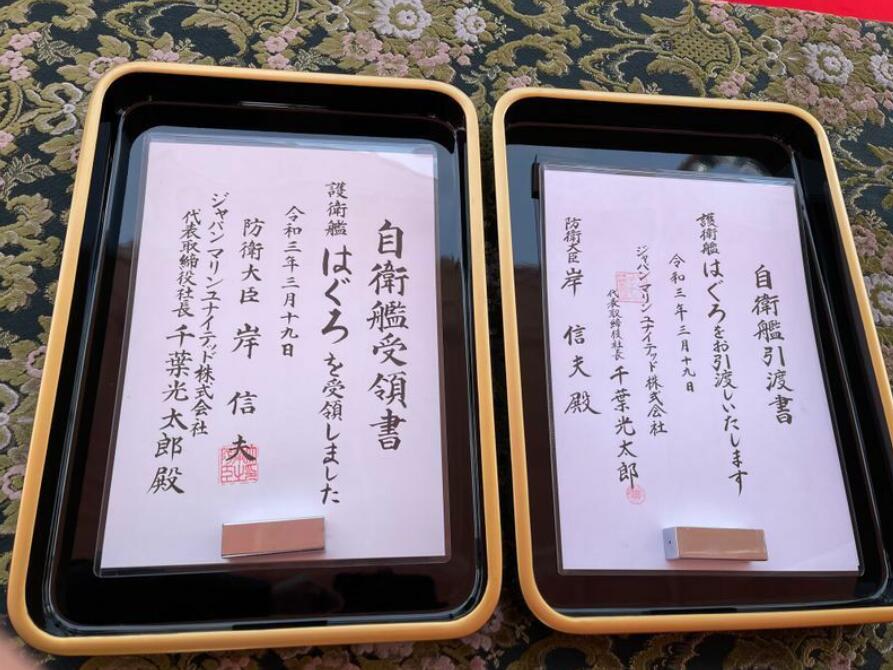 自衛艦引渡書
護衛艦 はぐろをお引渡しいたします
令和三年三月十九日
ジャパンマリンユナイテッド株式会社
代表取締役社長 千葉光太郎
防衛大臣 岸 信夫 殿
自衛艦受領書
護衛艦 はぐろを受領しました
令和三年三月十九日
防衛大臣 岸 信夫
ジャパンマリンユナイテッド株式会社
代表取締役社長 千葉光太郎 殿